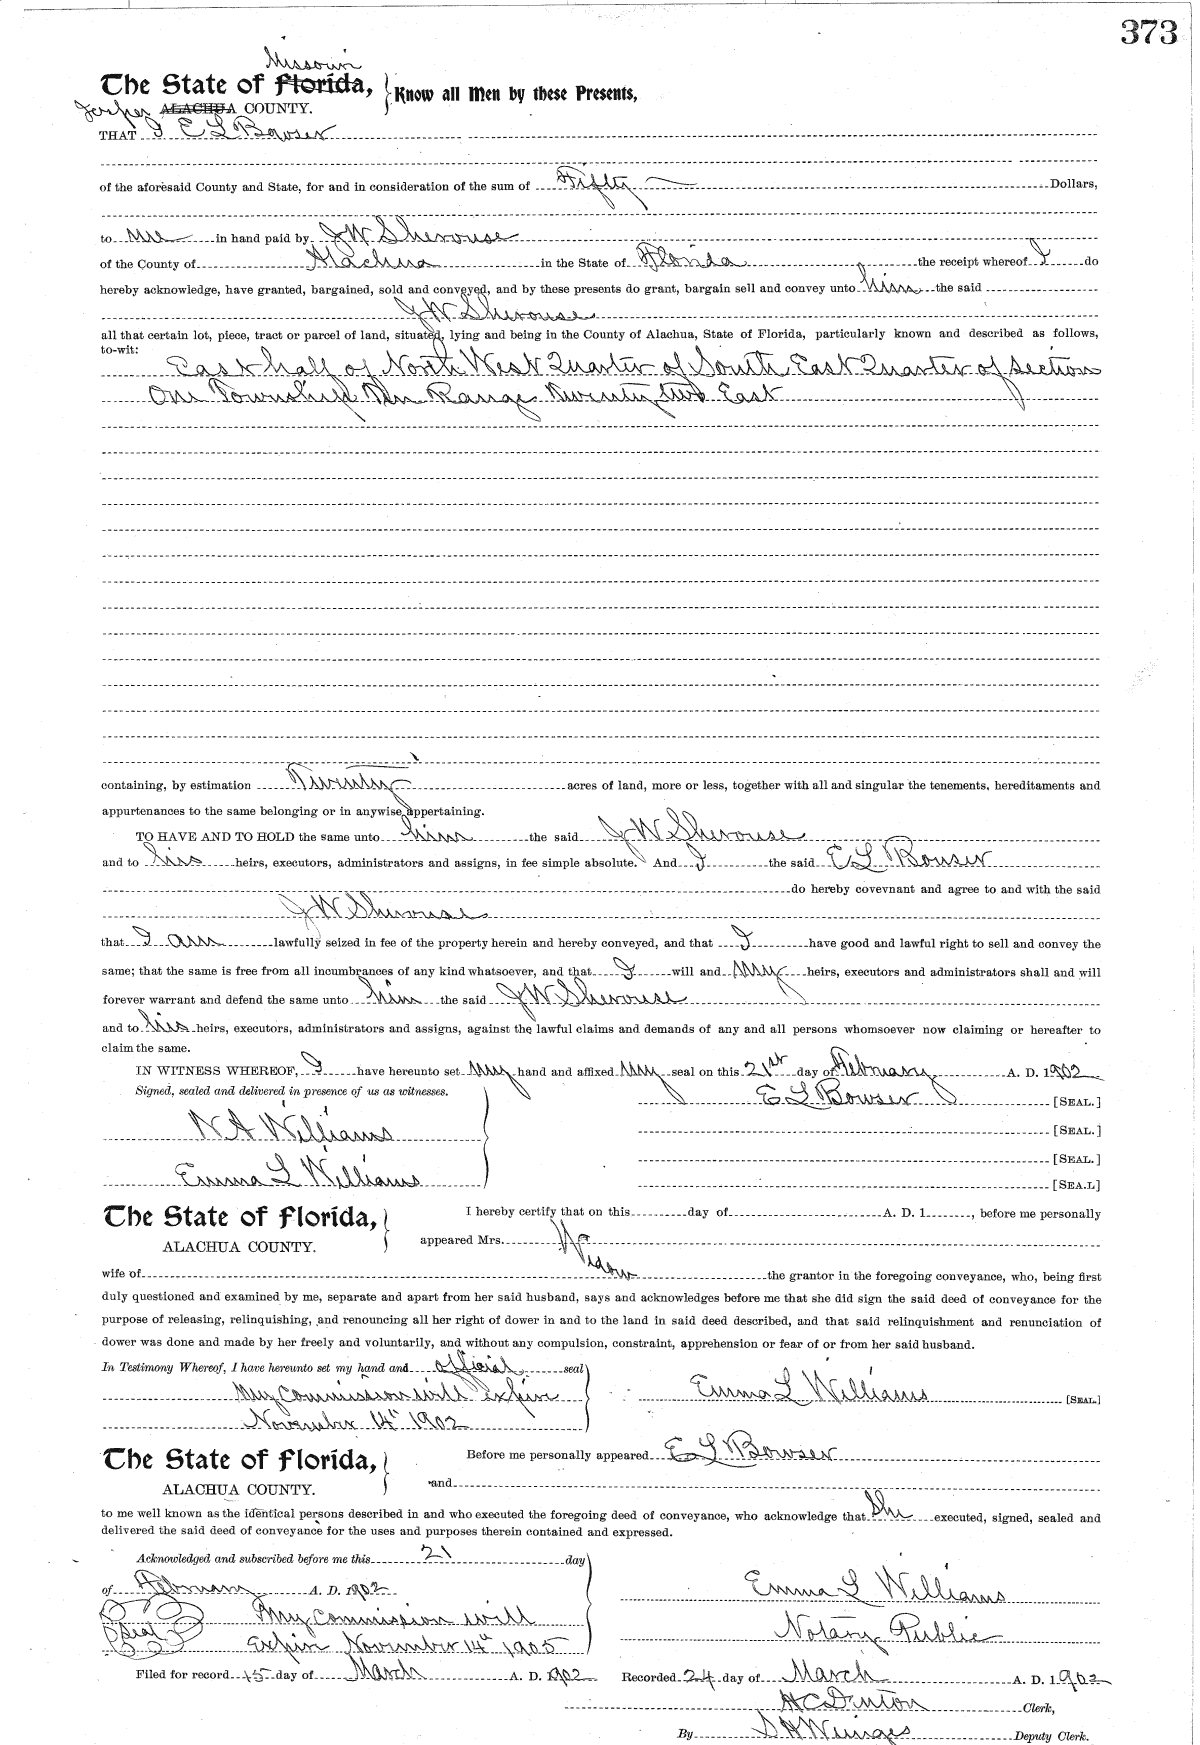 373
Missouri
The State of Florida,
Know all Men by these Presents,
Jasper ALACHUA COUNTY.
THAT I E L Bowser
of the aforesaid County and State, for and in consideration of the sum of Fifty Dollars,
to me in hand paid by J W Sherouse
of the County of Alachua in the State of Florida the receipt whereof I do
hereby acknowledge, have granted, bargained, sold and conveyed, and by these presents do grant, bargain sell and convey unto him the said
J W Sherouse
all that certain lot, piece, tract or parcel of land, situated, lying and being in the County of Alachua, State of Florida, particularly known and described as follows,
to-wit:
East half of North West Quarter of South East Quarter of section
One Township Ten Range Twenty two East
containing, by estimation Twenty acres of land, more or less, together with all and singular the tenements, hereditaments and
appurtenances to the same belonging or in anywise appertaining.
TO HAVE AND TO HOLD the same unto him the said J W Sherouse
and to his heirs, executors, administrators and assigns, in fee simple absolute. And I the said E L Bowser
do hereby covevnant and agree to and with the said
J W Sherouse
that I am lawfully seized in fee of the property herein and hereby conveyed, and that I have good and lawful right to sell and convey the
same; that the same is free from all incumbrances of any kind whatsoever, and that I will and my heirs, executors and administrators shall and will
forever warrant and defend the same unto him the said J W Sherouse
and to his heirs, executors, administrators and assigns, against the lawful claims and demands of any and all persons whomsoever now claiming or hereafter to
claim the same.
IN WITNESS WHEREOF, I have hereunto set my hand and affixed my seal on this 21st day of February A. D. 1902
Signed, sealed and delivered in presence of us as witnesses.
E L Bowser [SEAL.]
N A Williams
[SEAL.]
[SEAL.]
Emma L Williams
[SEA.L]
The State of Florida,
ALACHUA COUNTY.
I hereby certify that on this day of A. D. 1 , before me personally
appeared Mrs. Widow
wife of the grantor in the foregoing conveyance, who, being first
duly questioned and examined by me, separate and apart from her said husband, says and acknowledges before me that she did sign the said deed of conveyance for the
purpose of releasing, relinquishing, and renouncing all her right of dower in and to the land in said deed described, and that said relinquishment and renunciation of
dower was done and made by her freely and voluntarily, and without any compulsion, constraint, apprehension or fear of or from her said husband.
In Testimony Whereof, I have hereunto set my hand and official seal
My Commission will expire
Emma L Williams [SEAL]
November 14" 1902
The State of Florida,
ALACHUA COUNTY.
Before me personally appeared E L Bowser
and
to me well known as the identical persons described in and who executed the foregoing deed of conveyance, who acknowledge that She executed, signed, sealed and
delivered the said deed of conveyance for the uses and purposes therein contained and expressed.
Acknowledged and subscribed before me this 21 day
of February A. D. 1902
Emma L Williams
My Commission will
Seal
Expire November 14" 1905
Notary Public
Filed for record 15 day of March A. D. 1902
Recorded 24 day of March A. D. 1902
H C Denton Clerk,
By S H Wienges Deputy Clerk.